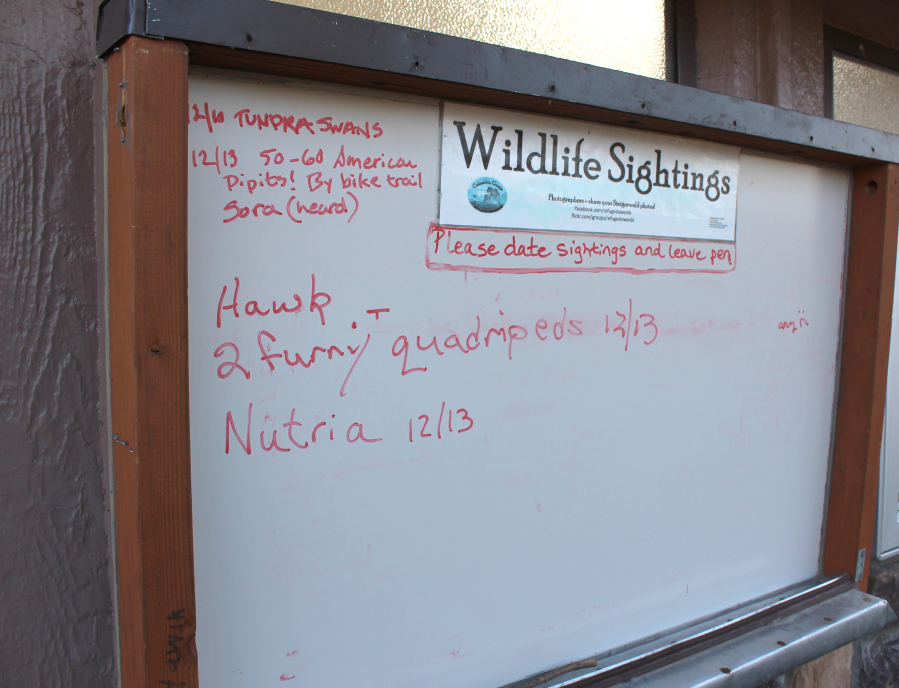 12/6 TUNDRA SWANS
12/13 50-60 American
Pipits! By bike trail
Sora (heard)
Wildlife Sightings
Photographers - share your Steigerwald photos!
facebook.com/refugestewards
flickr.com/groups/refugestewards
Please date sightings and leave pen
Hawk
2 furry quadripeds 12/13
Nutria 12/13